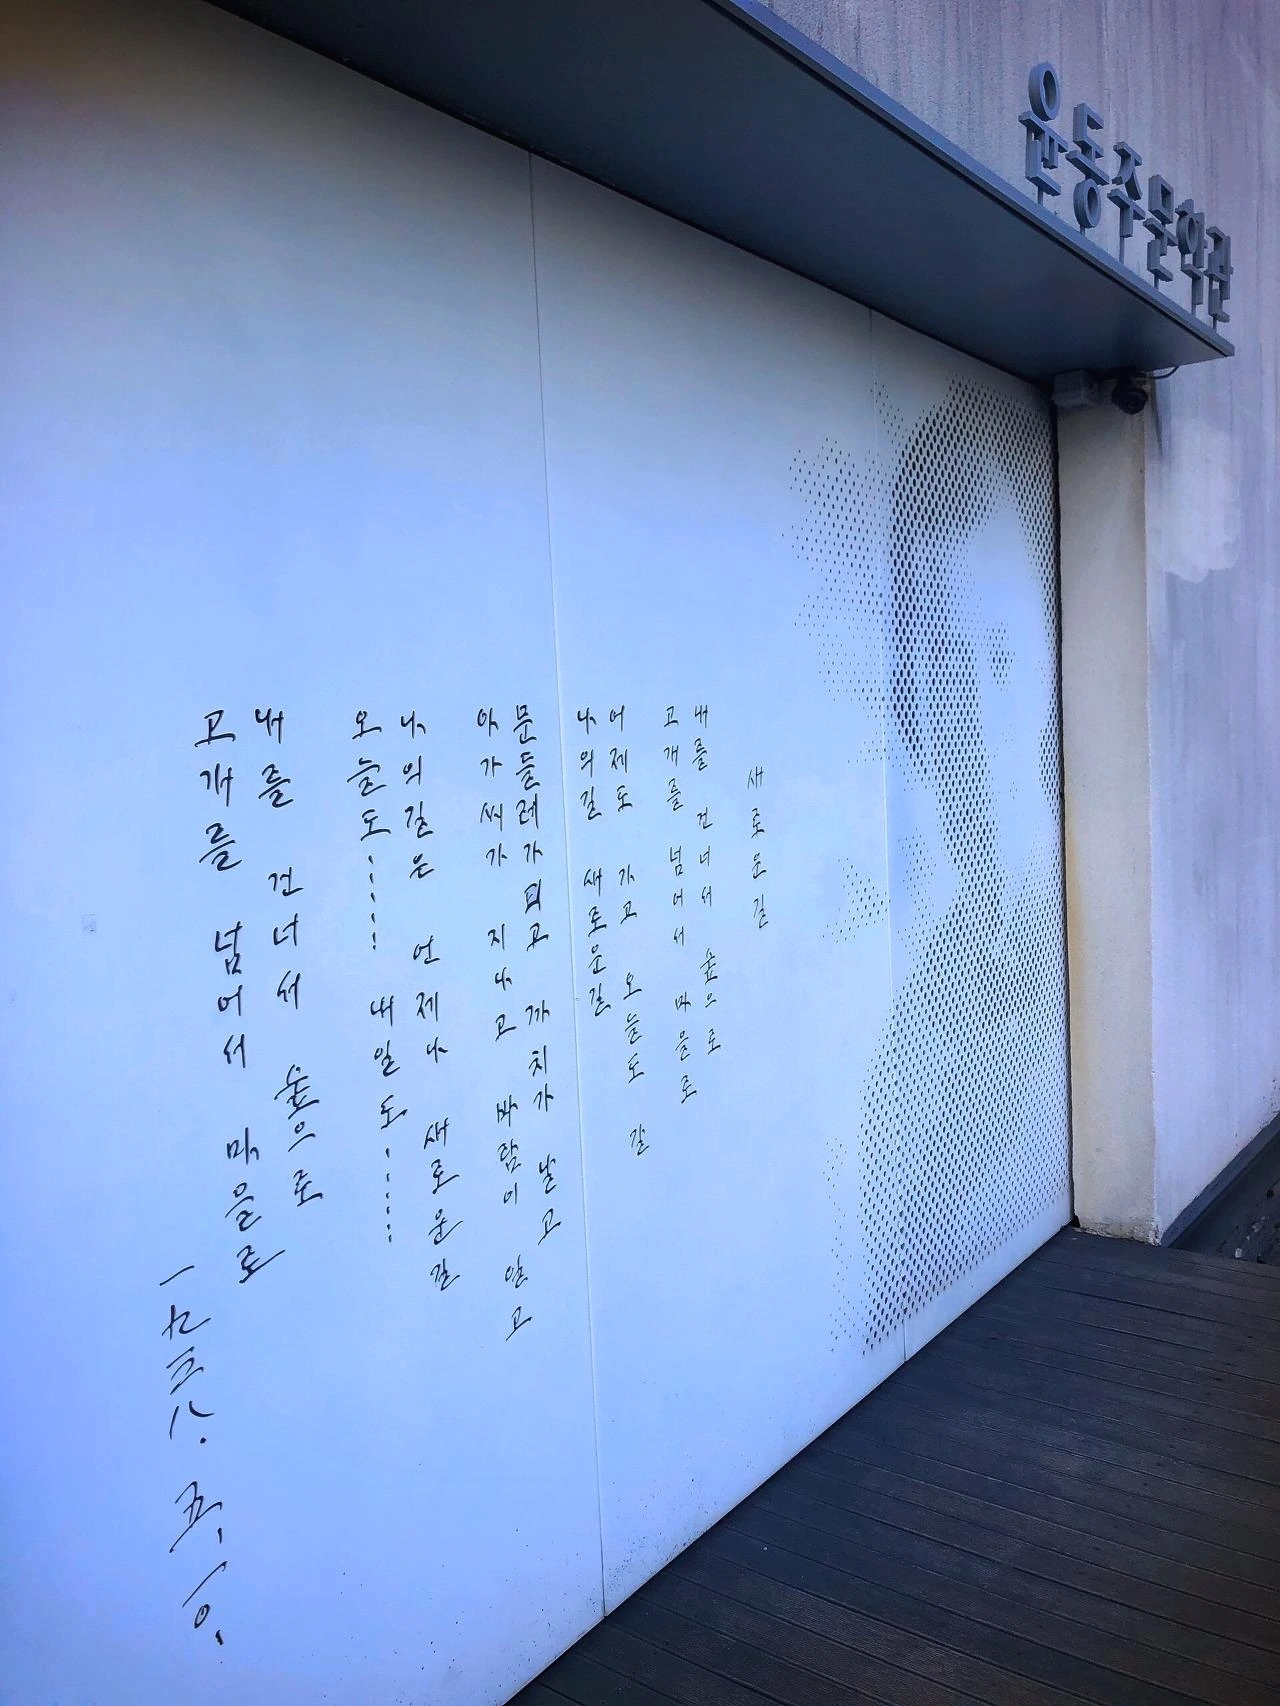 윤동주문학관
새로운길
내를 건너서 숲으로
고개를 넘어서 마을로
어제도 가고 오늘도 갈
나의길 새로운길
문들레가피고 까치가 날고
아가씨가 지나고 바람이 일고
나의길은 언제나 새로운길
오늘도…… 내일도……
내를 건너서 숲으로
고개를 넘어서 마을로
一九三八. 五, 一〇,